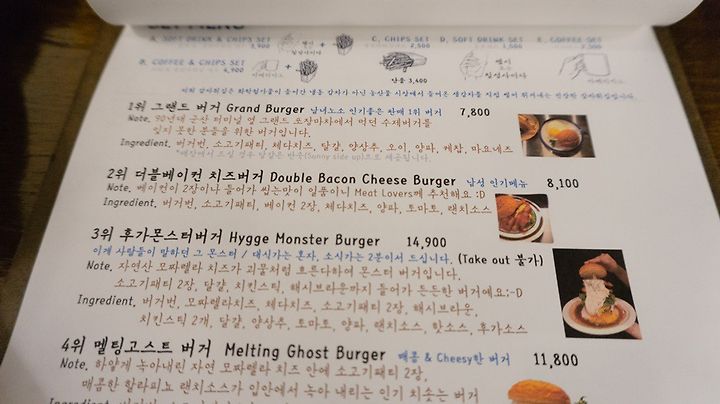 SET MENU
A. SOFT DRINK & CHIPS SET
3,900
C. CHIPS SET
2,500
D. SOFT DRINK SET
1,500
E. COFFEE SET
2,500
B. COFFEE & CHIPS SET
4,900
단품 3,400
1위 그랜드 버거 Grand Burger 남녀노소 인기좋은 판매 1위 버거 7,800
Note. 90년대 군산 터미널 옆 그랜드 오장마차에서 먹던 수제버거를
잊지 못한 분들을 위한 버거입니다.
Ingredient. 버거번, 소고기패티, 체다치즈, 달걀, 양상추, 오이, 양파, 케찹, 마요네즈
*매장에서 드실 경우 달걀은 반숙(Sunny side up)으로 제공됩니다.
2위 더블베이컨 치즈버거 Double Bacon Cheese Burger 남성 인기메뉴 8,100
Note. 베이컨이 2장이나 들어가 씹는맛이 일품이니 Meat Lovers께 추천해요 :D
Ingredient. 버거번, 소고기패티, 베이컨 2장, 체다치즈, 양파, 토마토, 랜치소스
3위 후가몬스터버거 Hygge Monster Burger 14,900
이게 사람들이 말하던 그 몬스터 / 대식가는 혼자, 소식가는 2분이서 드십니다. (Take out 불가)
Note. 자연산 모짜렐라 치즈가 괴물처럼 흐른다하여 몬스터 버거입니다.
소고기패티 2장, 달걀, 치킨스틱, 해시브라운까지 들어가 든든한 버거예요:-D
Ingredient. 버거번, 모짜렐라치즈, 체다치즈, 소고기패티 2장, 해시브라운,
치킨스틱 2개, 달걀, 양상추, 토마토, 양파, 랜치소스, 핫소스, 후가소스
4위 멜팅고스트 버거 Melting Ghost Burger 매콤 & Cheesy한 버거 11,800
Note. 하얗게 녹아내린 자연 모짜렐라 치즈 안에 소고기패티 2장,
매콤한 할라피뇨 랜치소스가 입안에서 녹아 내리는 인기 치솟는 버거